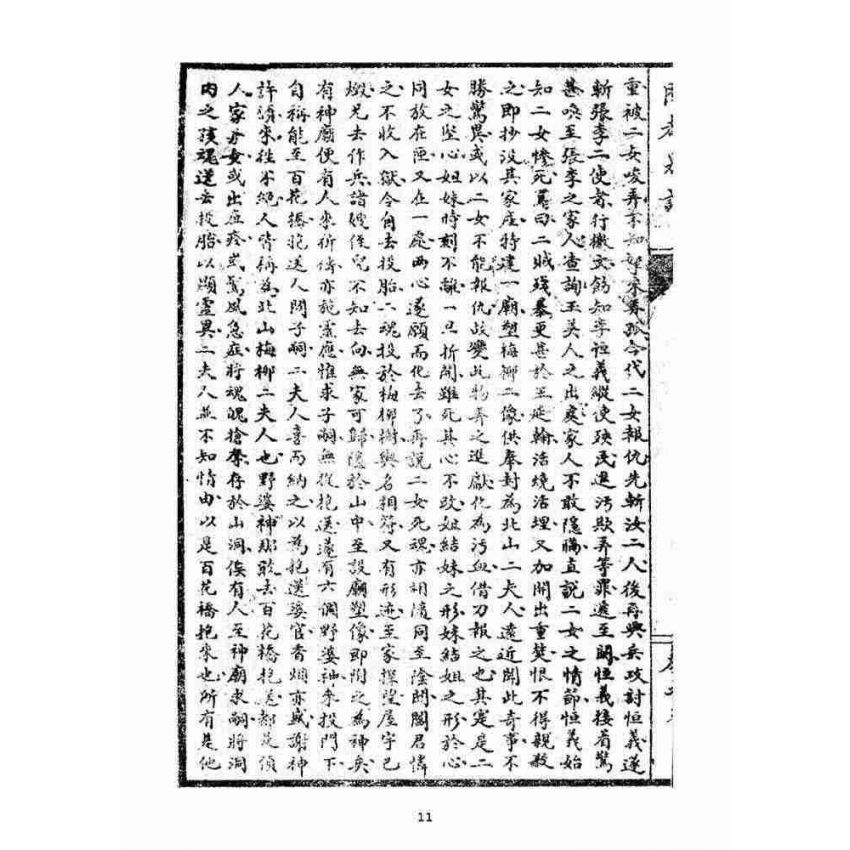 重被二女唆弄不知好來弄孤今代二女報仇先斬汝二人後再興兵攻討恒義遂
斬張李二使者行檄文飭知李恒義縱使殃民進污欺弄等罪遞至閩恒義接着驚
甚喚至張李之家人查詢玉美人之出處家人不敢隱瞞直說二女之情節恒義始
知二女慘死罵曰二賊殘暴更甚於王延翰活燒活埋又加開出重焚恨不得親殺
之即抄沒其家產特建一廟塑梅柳二像供奉封為北山二夫人遠近聞此奇事不
勝驚異或以二女不能報仇故變此物弄之進獻化為污血借刀報之也其寔是二
女之堅心姐妹時刻不離一旦折開雖死其心不改姐結妹之形妹結姐之形於心
同放在匣又在一處兩心遂願而化去了再說二女死魂亦相隨同至陰間閻君憐
之不收入獄令自去投胎二魂投於梅柳樹與名相符又有形迹至家探望屋宇已
燬兄去作兵諸嫂侄兒不知去向無家可歸隱於山中至設廟塑像即附之為神矣
有神廟便有人來祈禱亦施靈應惟求子嗣無從抱送遂有六個野婆神來投門下
自稱能至百花橋抱送人間子嗣二夫人喜而納之以為抱送婆官香烟亦盛謝神
許願來往不絕人皆稱為北山梅柳二夫人也野婆神那敢去百花橋抱送都是偵
人家子女或出痘疹或驚風急症將魂魄搶奪存於山洞俟有人至神廟求嗣將洞
內之孩魂送去投胎以顯靈異二夫人並不知情由以是百花橋抱來也所有是他
11